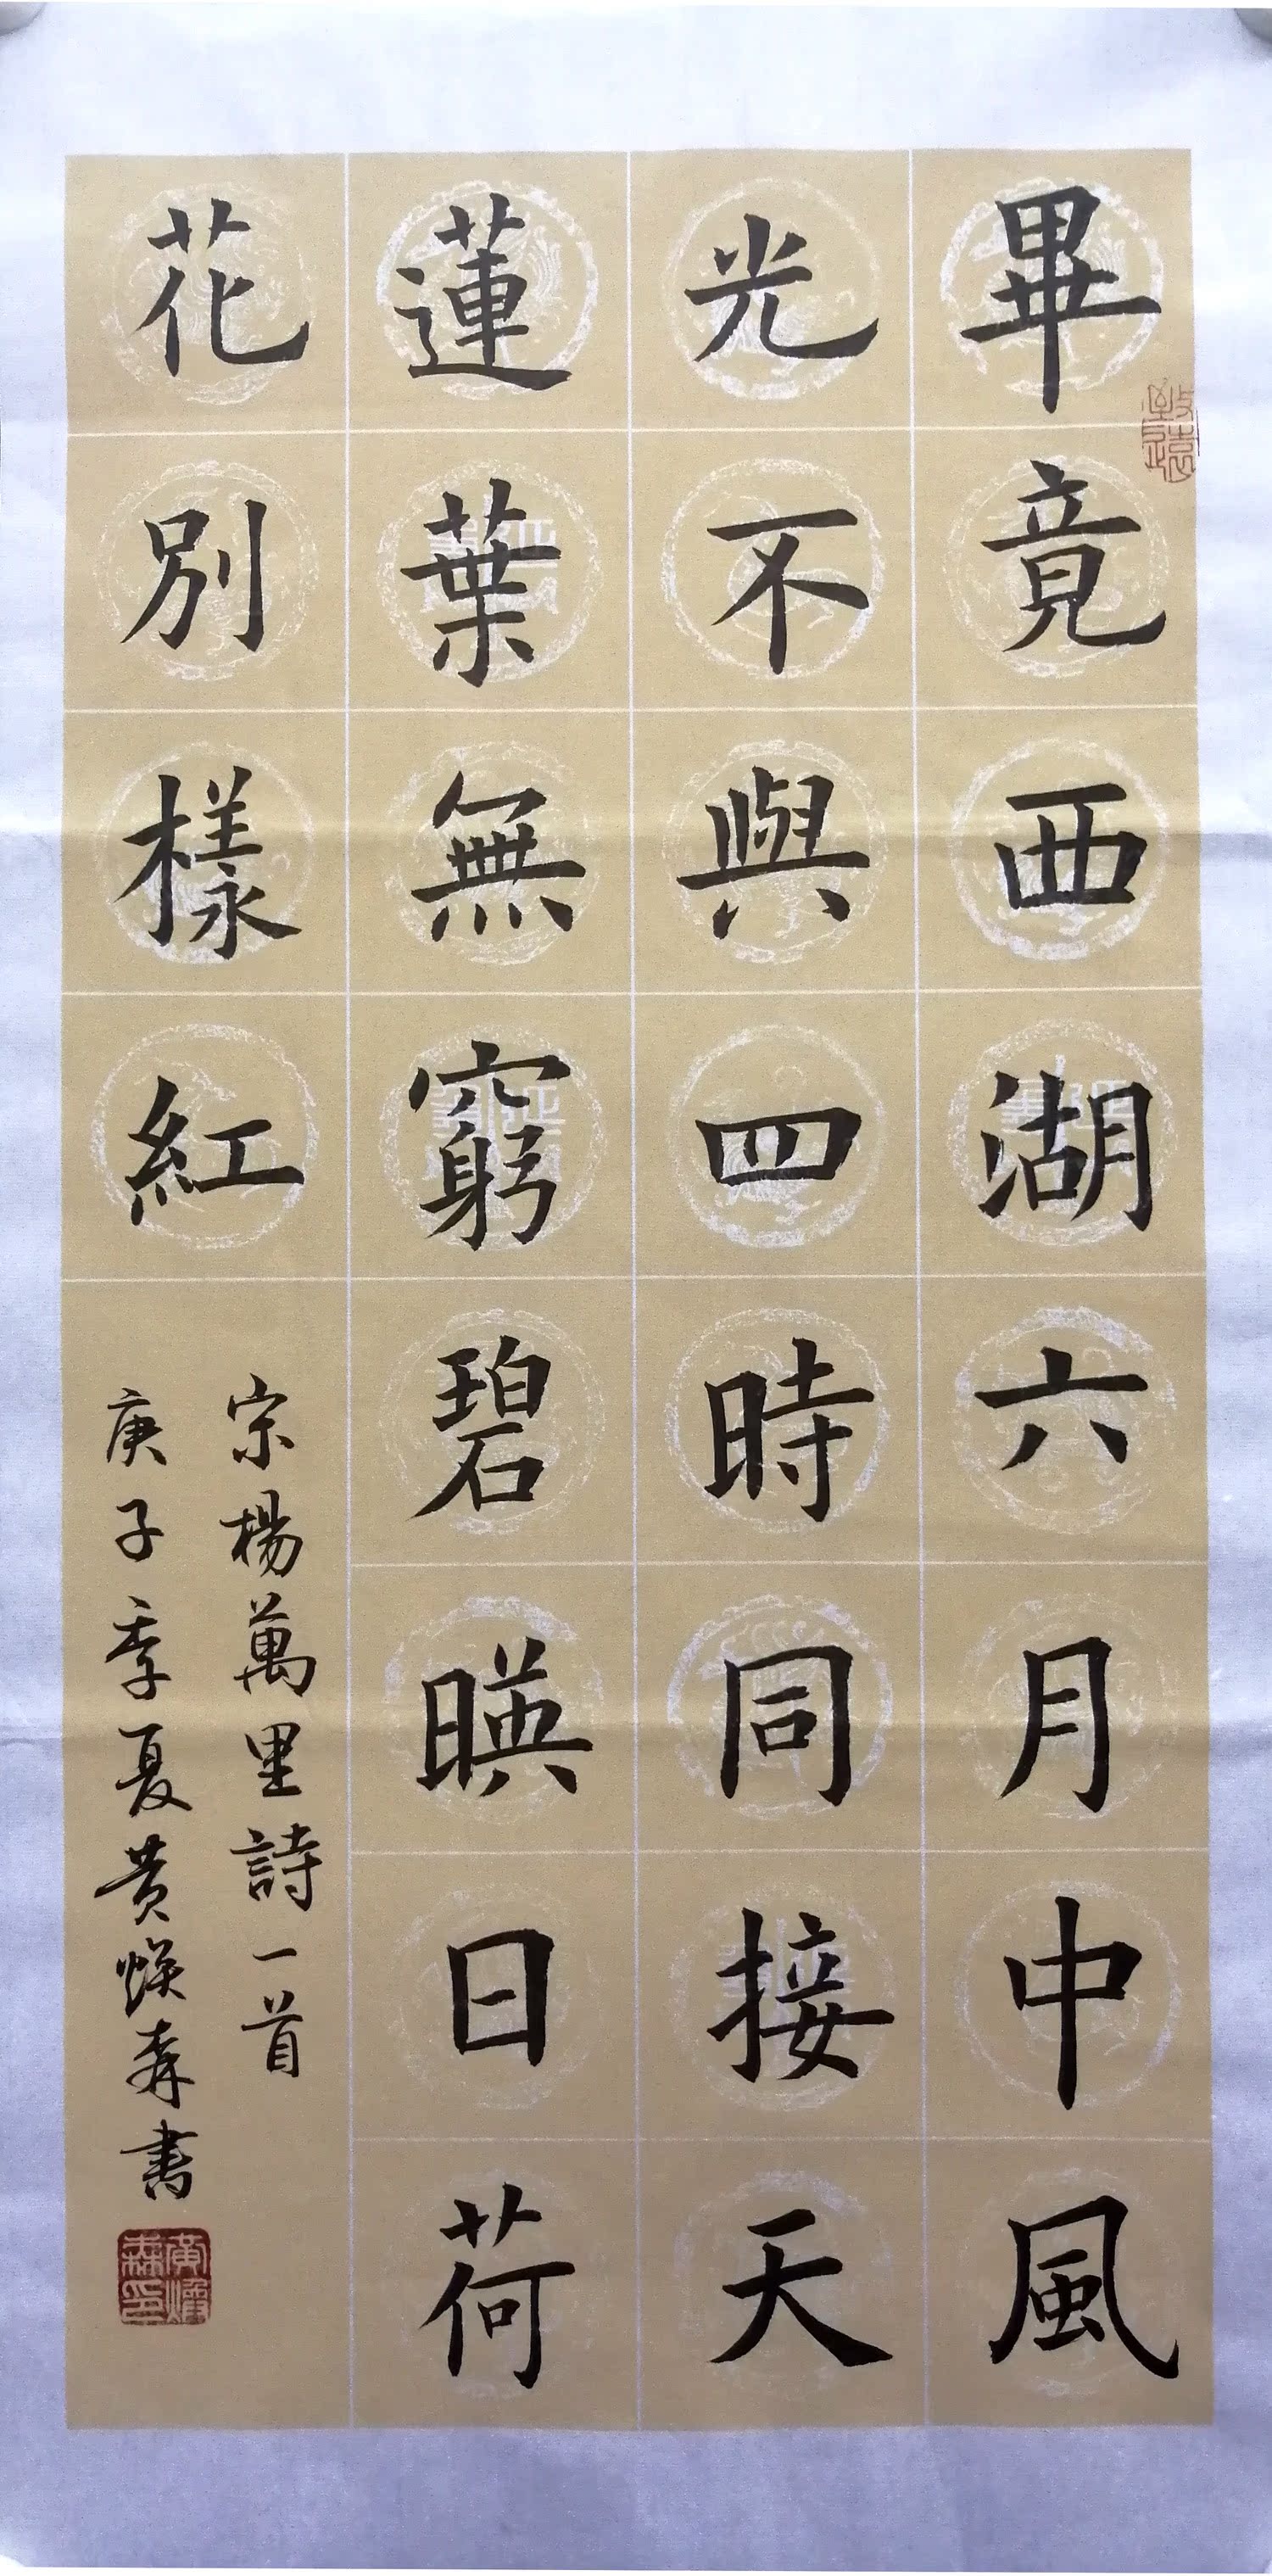 畢竟西湖六月中風
光不與四時同接天
蓮葉無窮碧暎日荷
花別樣紅
宗楊萬里詩一首
庚子季夏黄焕森書
致遠
黄焕森印